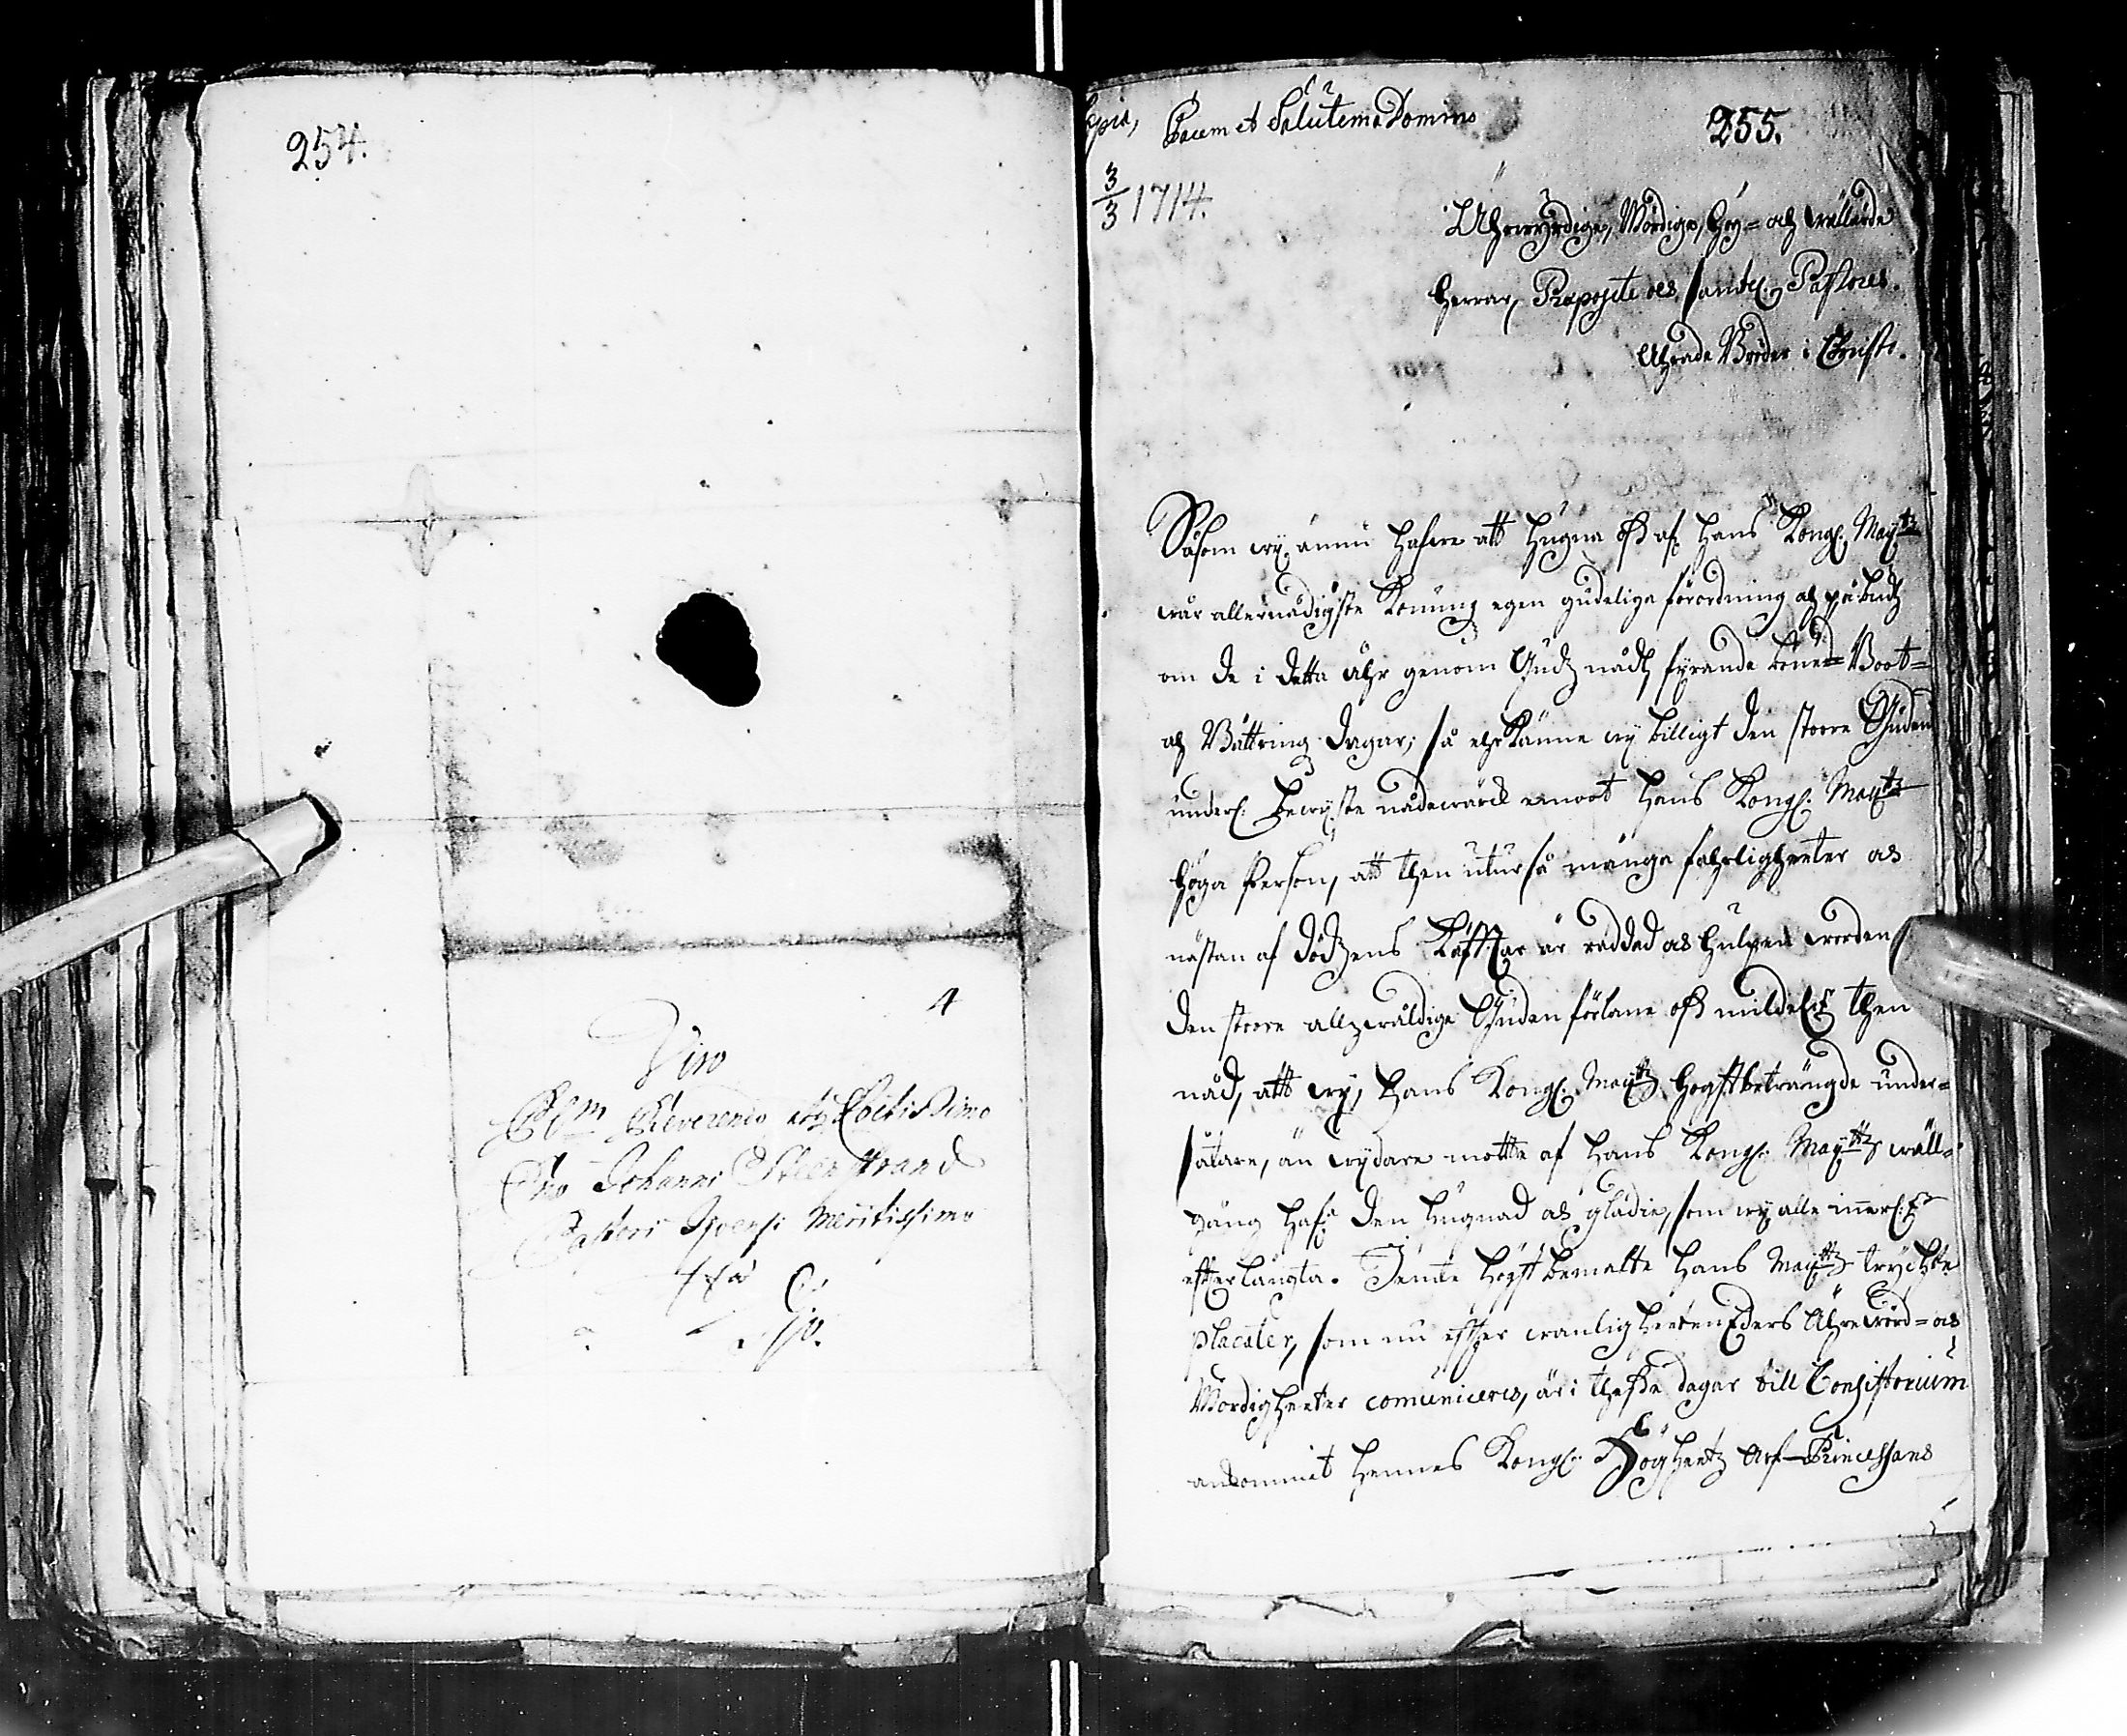 254.
4
Viro
Plm Reverendo atq Doctissimo
Dno Johanni Steenstrand
Pastori Ijoensi Meritissimo
Ijo.
Copia,
Pacem et Salutem a Domino
255.
3/3 1714.
Ährewyrdige, Wördige, Höy= och wällärde
Herrar, Præposite och samtl. Pastores.
Ährade Bröder i Christo.
Såsom wy ännu hafwe att hugna oss af Hans Kongl. Maytz
wår allernådigste Konung egen gudeliga förordning och påbudh
om de i detta åhr genom Gudz nådh fyrande bönne= Boot=
och Bättring dagar; så ehrkänne wy billigt den stoore Guden
underl. bewyste nådewärck emoot Hans Kongl. Maytz
höga Person, att then utur så många fahrligheeter och
nästan af dödzens käfftar är räddad och hulpen worden
den stoore allzwäldige Guden förläne oss mildeligen then
nåd, att wy, Hans Kongl. Maytz högstbeträngde under=
såtare, än wydare motte af Hans Kongl. Maytz wäll=
gång hafa den hugnad och glädie, som wy alle innerl.
effterlängta. Jemte högstbemälte Hans Maytz tryckte
placater, som nu effter wanligheeten Eders Ährewörd= och
Wördigheeter comuniceres, är i thesse dagar till Consistorium
ankommit Hennes Kongl. Höghheetz Arf-Princessans